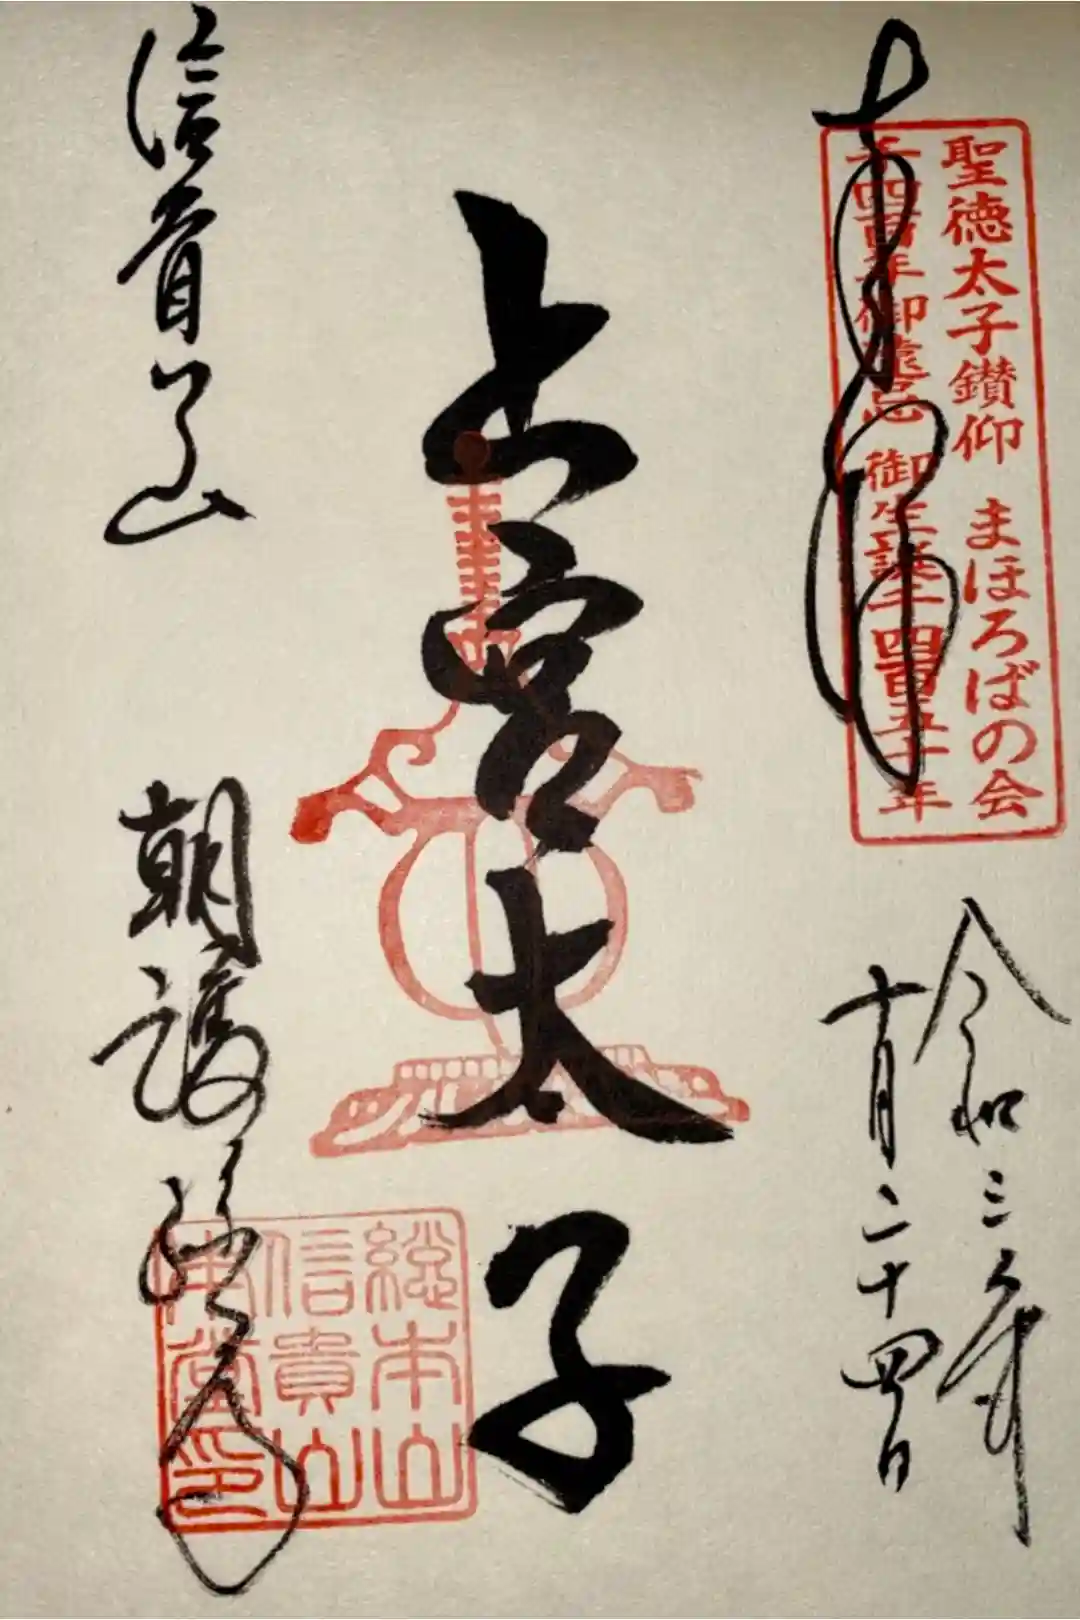 奉拝
聖徳太子鑚仰 まほろばの会
千四百年御遠忌 御生誕千四百五十年
令和三年
十月二十四日
上宮太子
信貴山
朝護孫子寺
総本山
信貴山
本堂印